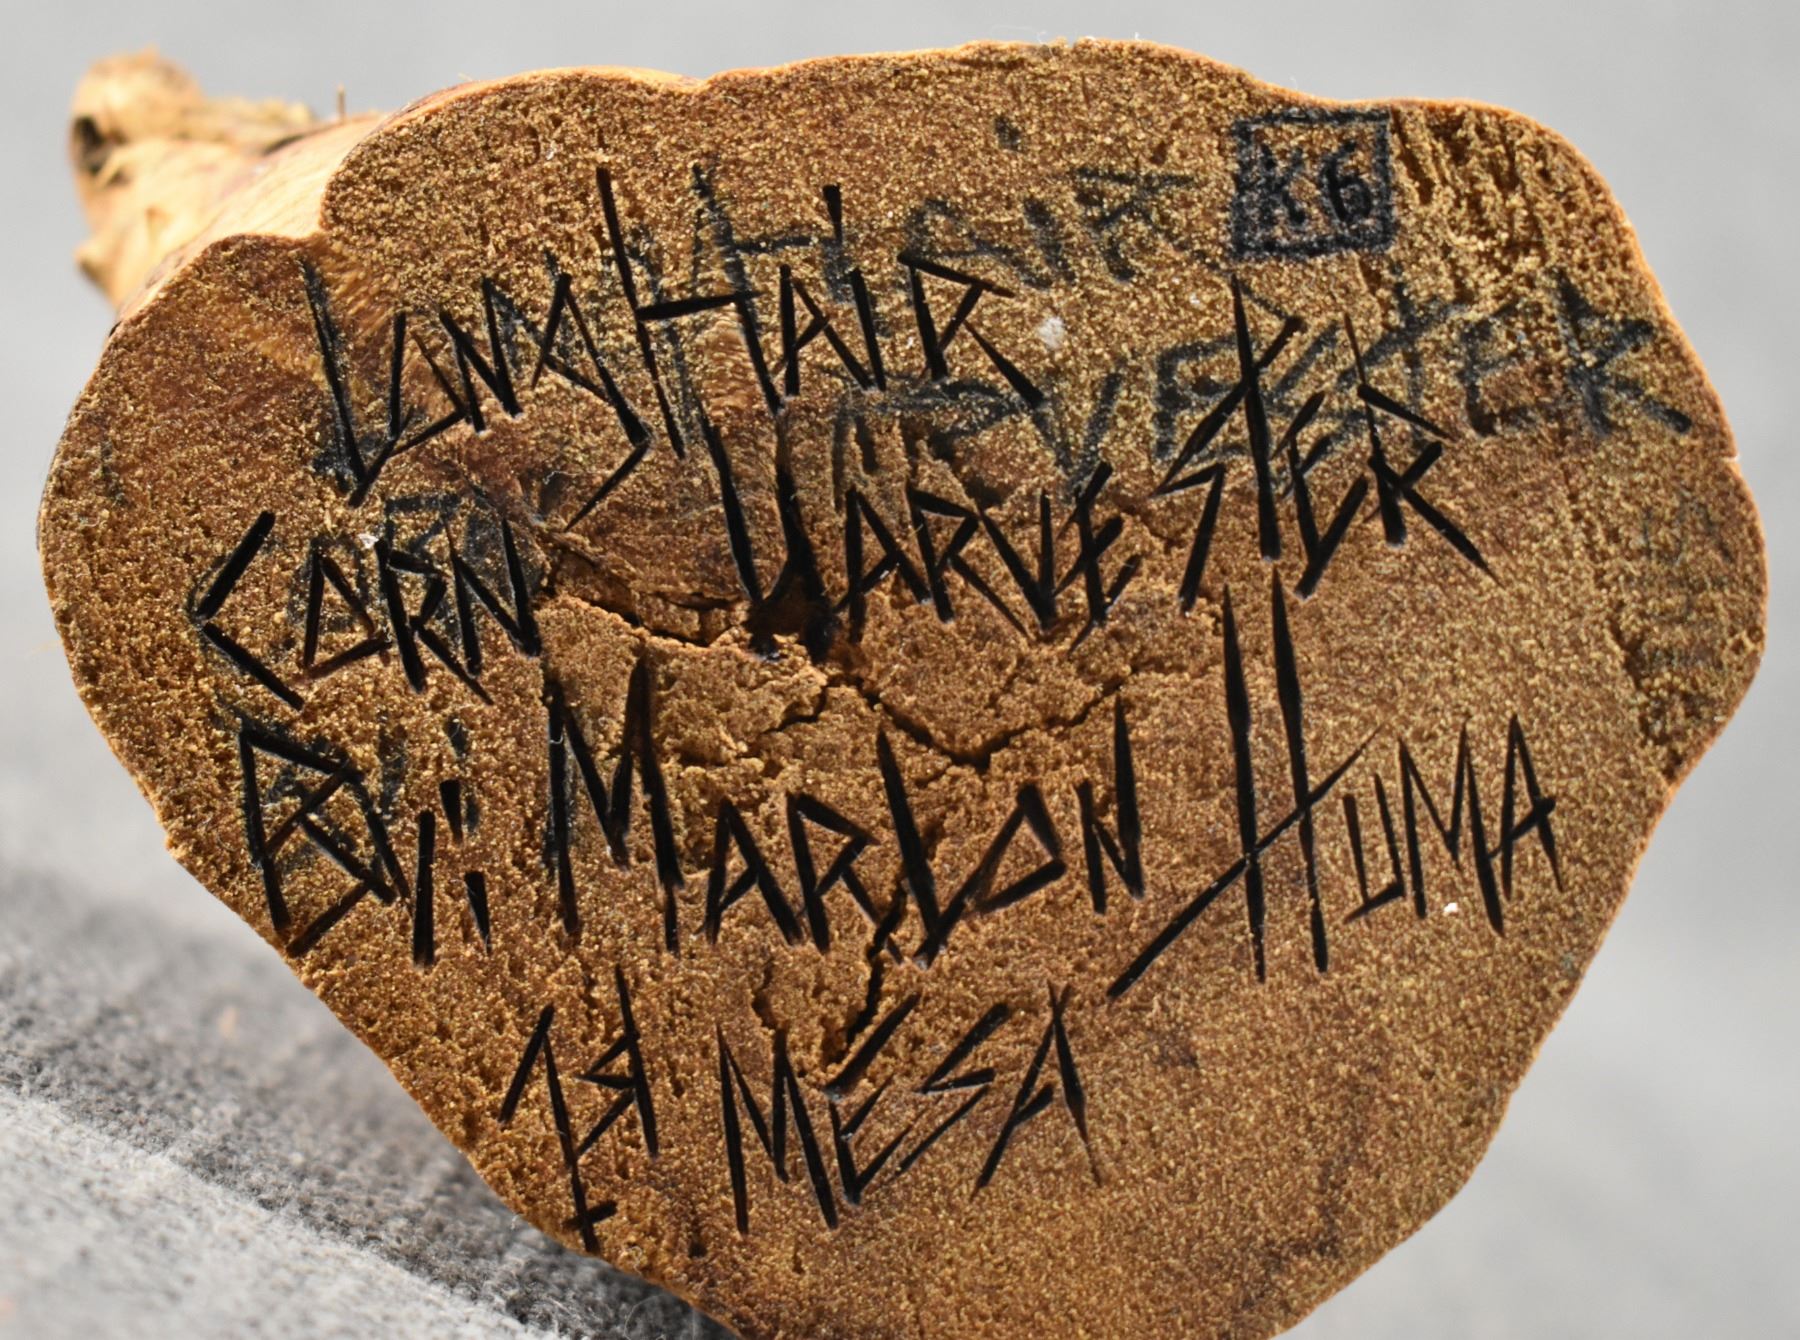 K6
LONG HAIR
CORN HARVESTER
By: MARLON HUMA
1st MESA